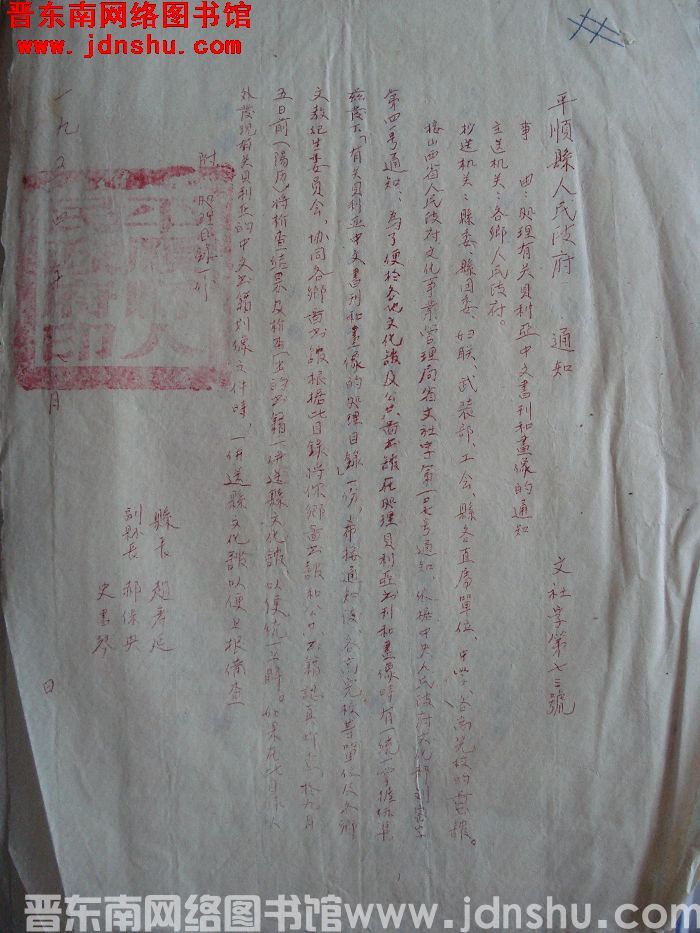 晋东南网络图书馆
www.jdnshu.com
平順縣人民政府 通知
文社字第七三號
事 由：处理有关貝利亞中文書刊和畫像的通知
主送机关：各鄉人民政府。
抄送机关：縣委、縣团委、妇联、武装部、工会、縣各直屬單位、中学、各高完校的
接山西省人民政府文化事業管理局省文社字第一〇七号通知，依據中央人民政府文化部
第四一号通知：為了便於各地文化館及公共啚書館在处理貝利亞書刊和畫像時有一統一掌握依據
茲发下「有关貝利亞中文書刊和畫像的处理目錄」一份，希接通知後，各高完校等單位及各鄉
文教衛生委員会，协同各鄉啚書館根據此目錄將你鄉啚書館和公共書籍認真檢查，於九月
五日前（陽历）將檢查結果及檢查出的書籍一併送縣文化館以便統一上解。如果在此目錄以
外发現有关貝利亞的中文書籍刊像文件時，一併送縣文化館以便上报備查
附 处理目錄一份
縣長 趙
副縣長 郝保
史書琴
一九五四年 月 日
平順縣人民政府印
晋东南网络图书馆 www.jdnshu.com